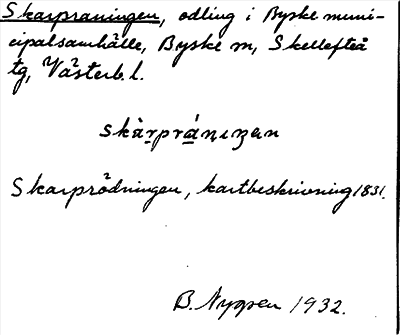 Skarpraningen, odling i Byske muni-
cipalsamhälle, Byske sn, Skellefteå
tg, Västerb. l.
skàrpráningan
Skarprödningen, kartbeskrivning 1831.
B. Nygren 1932.